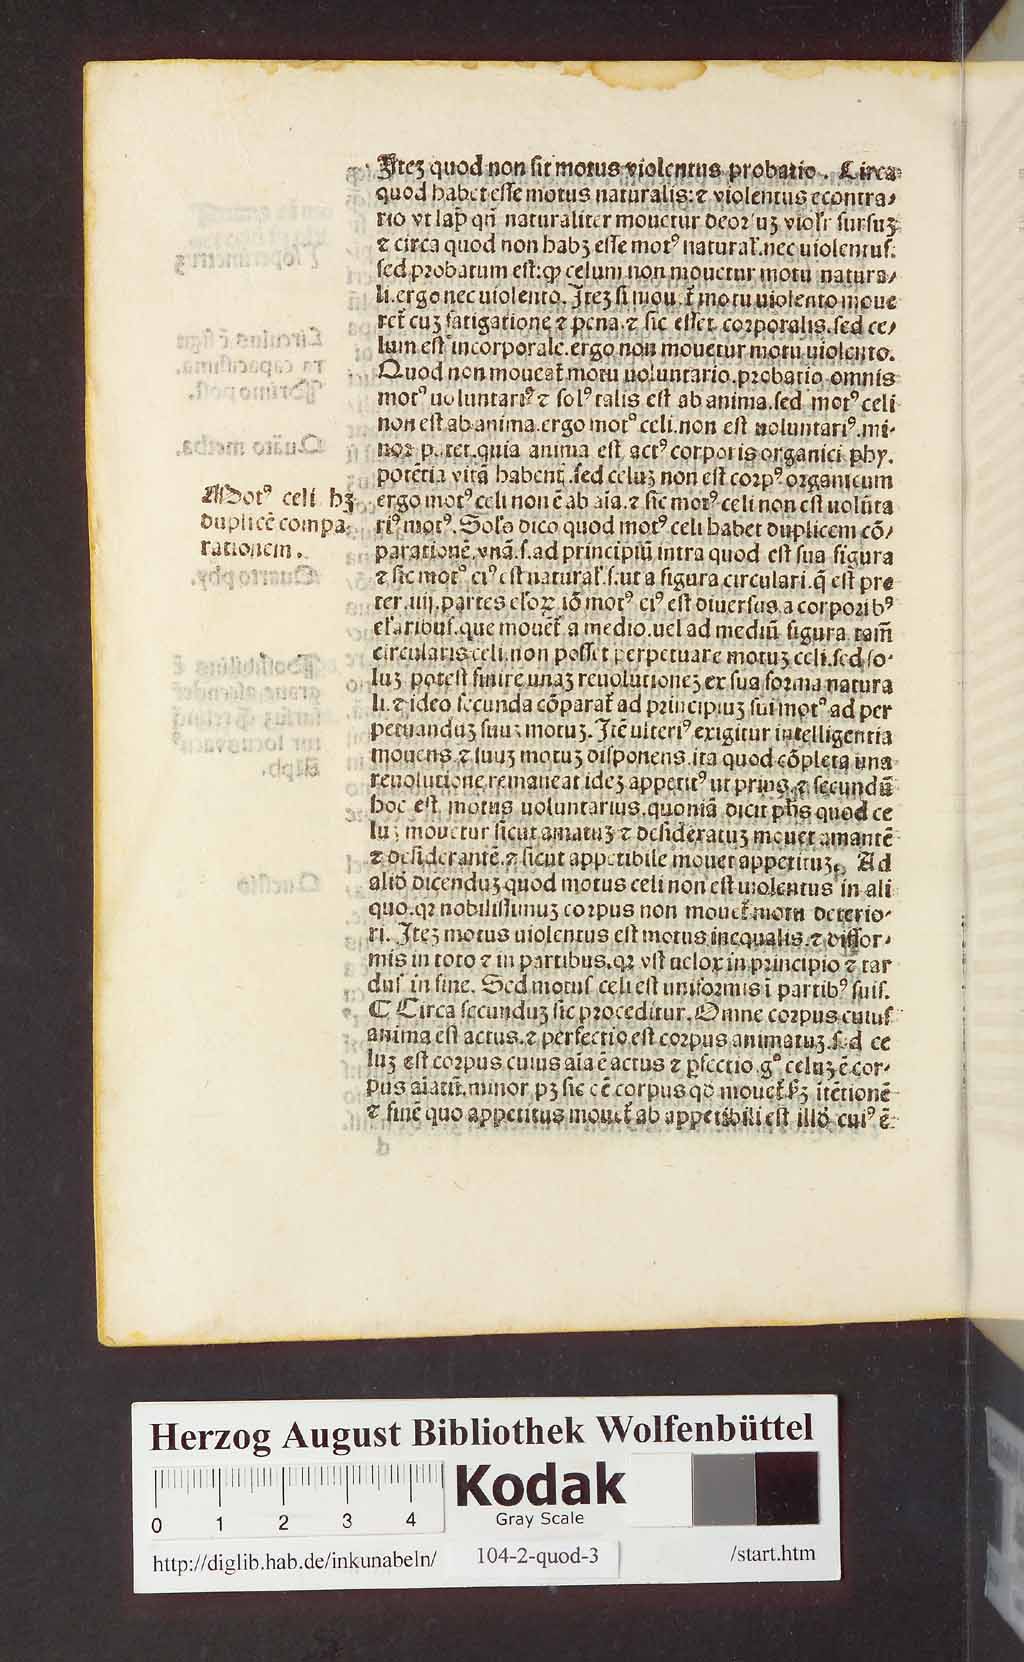 Iteʒ quod non sit motus violentus probatio. Circa
quod habet esse motus naturalis: ⁊ violentus econtra⸗
rio vt lap̄ qn̄ naturaliter mouetur deorsuʒ violr̄ sursuʒ
⁊ circa quod non habʒ esse motꝰ natural̄. nec uiolentus:
sed probatum est: ꝙ celum non mouetur motu natura⸗
li. ergo nec uiolento. Iteʒ si mou. t̄ motu uiolento moue
ret̄ cuʒ fatigatione ⁊ pena. ⁊ sic esset corporalis. sed ce⸗
lum est incorporale. ergo non mouetur motu uiolento.
Quod non moueat̄ motu uoluntario. probatio omnis
motꝰ uoluntariꝰ ⁊ solꝰ talis est ab anima. sed motꝰ celi
non est ab anima. ergo motꝰ celi. non est uoluntariꝰ. mi⸗
nor patet. quia anima est actꝰ corporis organici phy.
potētia vitā habentꝭ. sed celuʒ non est corpꝰ organicum
ergo motꝰ celi non ē ab aīa. ⁊ sic motꝰ celi non est uolūta
riꝰ motꝰ. Solo dico quod motꝰ celi habet duplicem cō⸗
parationē. vnā. s. ad principiū intra quod est sua figura
⁊ sic motꝰ eiꝰ est natural̄. s. ut a figura circulari. q̄ est pre
ter. iiij. partes eloꝝ iō motꝰ eiꝰ est diuersus a corporibꝰ
el̄aribus. que mouēt̄ a medio. uel ad mediū figura tam̄
circularis celi. non posset perpetuare motuʒ celi. sed so⸗
luʒ potest finire unaʒ reuolutioneʒ ex sua forma natura
li. ⁊ ideo secunda cōparat̄ ad principiuʒ sui motꝰ ad per
petuanduʒ suuʒ motuʒ. Itē ulteriꝰ exigitur intelligentia
mouens. ⁊ suuʒ motuʒ disponens. ita quod cōpleta una
reuolutione remaneat ideʒ appetitꝰ ut prius. ⁊ secundū
hoc est motus uoluntarius. quoniā dicit ph̄s quod ce
luʒ mouetur sicut amatuʒ ⁊ desideratuʒ mouet amantē
⁊ desiderantē. ⁊ sicut appetibile mouet appetituʒ. Ad
aliō dicenduʒ quod motus celi non est uiolentus in ali
quo. qꝛ nobilissimuʒ corpus non mouet̄ motu deterio⸗
ri. Iteʒ motus uiolentus est motus inequalis. ⁊ diffor⸗
mis in toto ⁊ in partibus. qꝛ vst uelox in principio ⁊ tar
dus in fine. Sed motus celi est uniformis ī partibꝰ suis.
¶ Circa secunduʒ sic proceditur. Omne corpus cuius
anima est actus. ⁊ perfectio est corpus animatuʒ. sed ce
luʒ est corpus cuius aīa ē actus ⁊ ꝑfectio gͦ celuʒ ē cor⸗
pus aīatū. minor pʒ sic cē corpus qd mouet̄. sʒ ītētionē
⁊ finē quo appetitus mouet̄ ab appetibili est illō cuiꝰ ē
Motꝰ celi hʒ
duplicē compa
rationem.
Herzog August Bibliothek Wolfenbüttel
0 1 2 3 4
Kodak
Gray Scale
http://diglib.hab.de/inkunabeln/ 104-2-quod-3 /start.htm